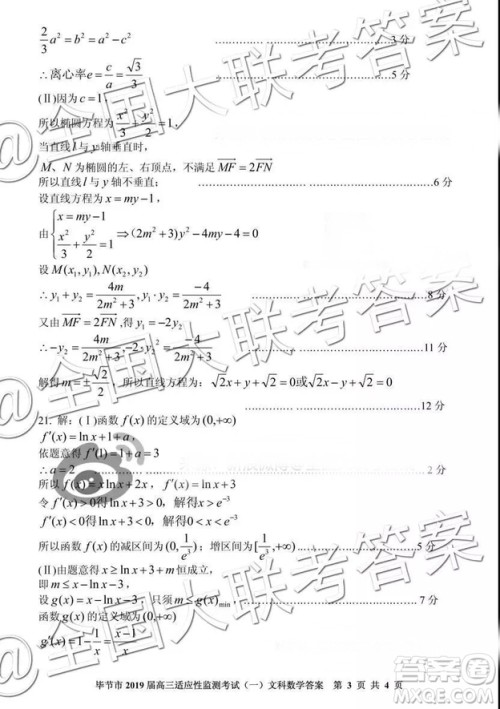 $\frac{2}{3}a^2=b^2=a^2-c^2$ ……………………3 分
∴离心率 $e=\frac{c}{a}=\frac{\sqrt{3}}{3}$ ……………………5 分
(Ⅱ)因为 $c=1$,
所以椭圆方程为 $\frac{x^2}{3}+\frac{y^2}{2}=1$,
当直线 $l$ 与 $y$ 轴垂直时,
$M$、$N$ 为椭圆的左、右顶点, 不满足 $\overrightarrow{MF}=2\overrightarrow{FN}$
所以直线 $l$ 与 $y$ 轴不垂直; ……………………6 分
设直线方程为 $x=my-1$,
由 $\begin{cases}x=my-1\\ \frac{x^2}{3}+\frac{y^2}{2}=1\end{cases}$ $\Rightarrow(2m^2+3)y^2-4my-4=0$
设 $M(x_1,y_1),N(x_2,y_2)$
∴ $y_1+y_2=\frac{4m}{2m^2+3},y_1y_2=\frac{-4}{2m^2+3}$ ……………………8 分
又由 $\overrightarrow{MF}=2\overrightarrow{FN}$,得 $y_1=-2y_2$
∴ $-y_2=\frac{4m}{2m^2+3},-2y_2^2=\frac{-4}{2m^2+3}$ ……………………11 分
解得 $m=\pm\frac{\sqrt{2}}{2}$, 所以直线方程为: $\sqrt{2}x+y+\sqrt{2}=0$或$\sqrt{2}x-y+\sqrt{2}=0$
……………………12 分
21. 解: (Ⅰ)函数 $f(x)$ 的定义域为 $(0,+\infty)$
$f'(x)=\ln x+1+a$,
依题意得 $f'(1)=1+a=3$
∴ $a=2$ ……………………2 分
所以 $f(x)=x\ln x+2x$, $f'(x)=\ln x+3$
令 $f'(x)>0$得 $\ln x+3>0$, 解得 $x>e^{-3}$
$f'(x)<0$得 $\ln x+3<0$, 解得 $x<e^{-3}$
所以函数 $f(x)$ 的减区间为 $(0,\frac{1}{e^3})$; 增区间为 $[\frac{1}{e^3},+\infty)$ ……………………5 分
(Ⅱ)由题意得 $x\geq\ln x+3+m$ 恒成立,
即 $m\leq x-\ln x-3$,
设 $g(x)=x-\ln x-3$, 只须 $m\leq g(x)_{\min}$, ……………………7 分
函数 $g(x)$ 的定义域为 $(0,+\infty)$
$g'(x)=1-\frac{1}{x}=\frac{x-1}{x}$
毕节市 2019 届高三适应性监测考试(一)文科数学答案 第 3 页 共 4 页
@全国大联考答案
@全国大联考答案
@全国大联考答案